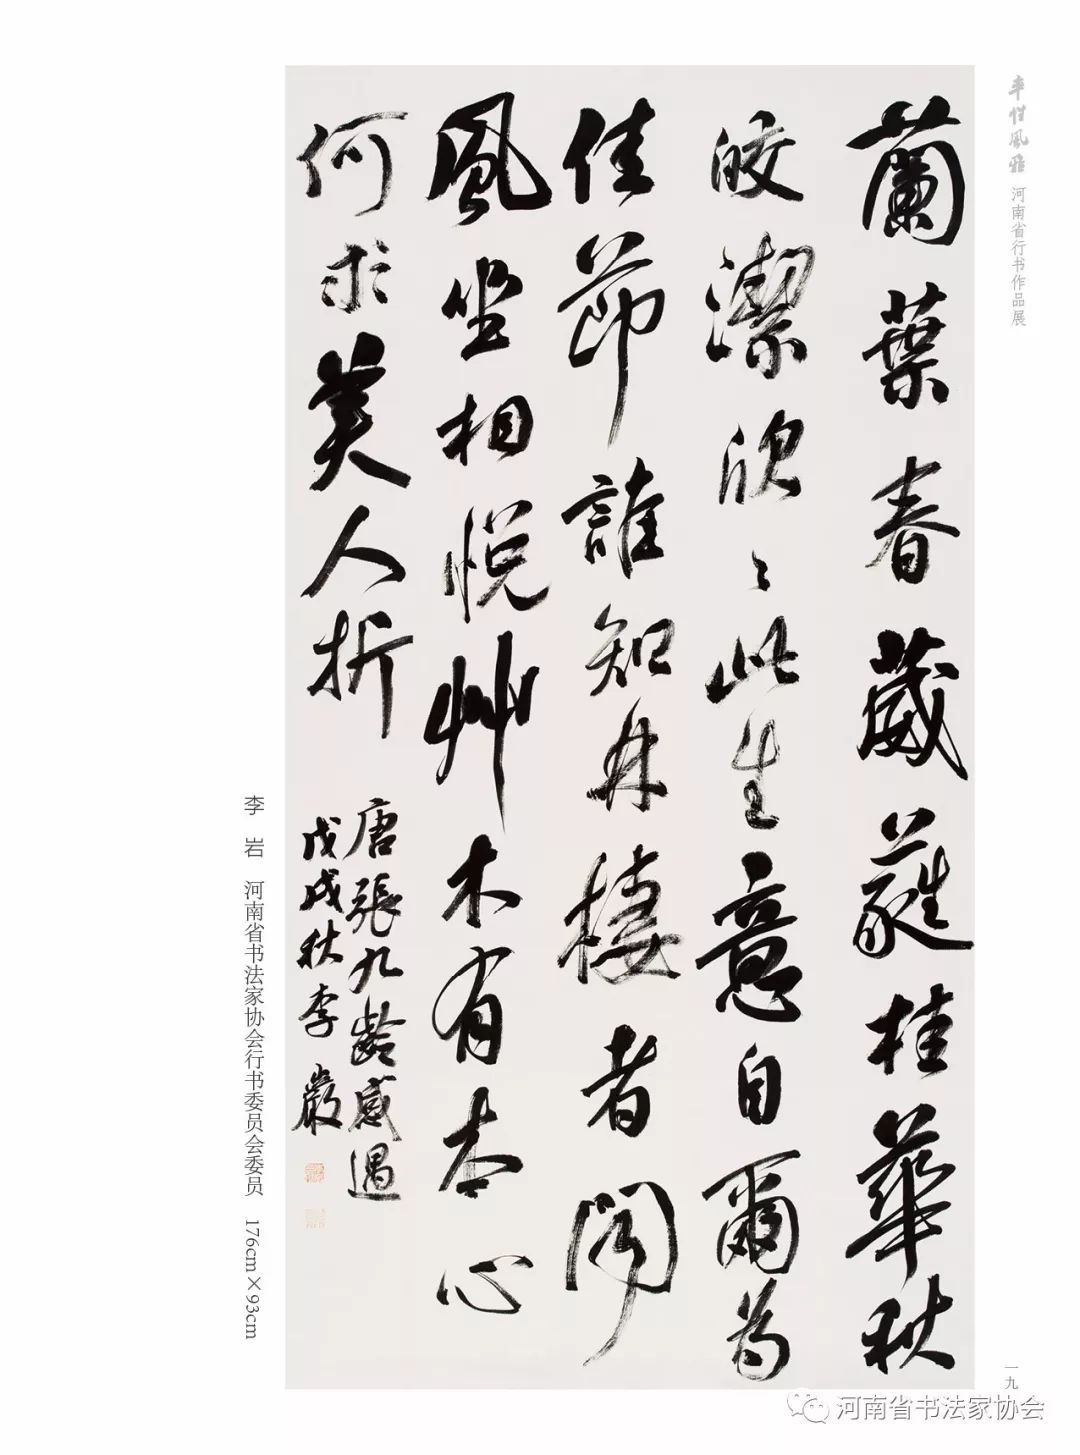 風雅 河南省行书作品展
蘭葉春葳蕤桂華秋
皎潔欣〻此生意自爾為
佳節誰知林棲者聞
風坐相悦艸木有本心
何求美人折
唐張九齡感遇
戊戌秋李巖
李岩 河南省书法家协会行书委员会委员 176cm×93cm
一九
河南省书法家协会